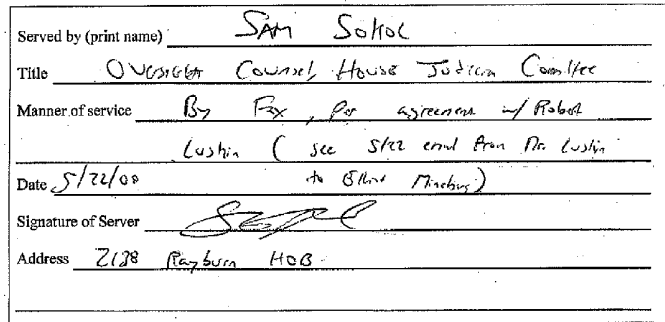 Served by (print name) SAM Sokol
Title Oversight Counsel, House Judiciary Committee
Manner of service By Fax, per agreement w/ Robert
Luskin ( see 5/22 email from Mr. Luskin
Date 5/22/08 to Elliot Mincberg)
Signature of Server
Address 2138 Rayburn HOB